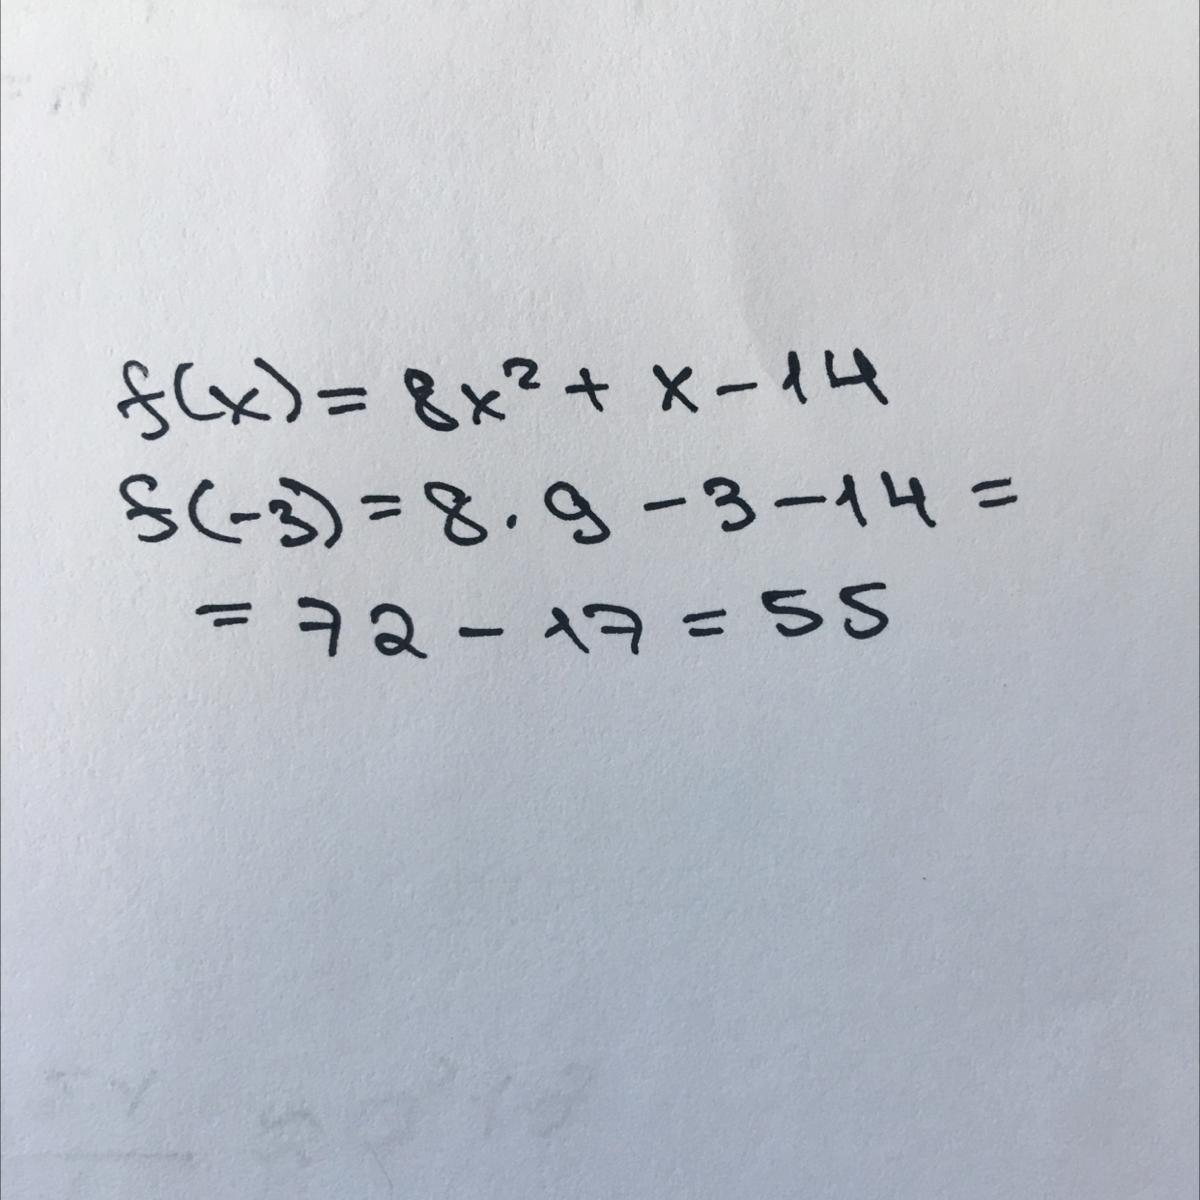 f(x) = 8x² + x - 14
f(-3) = 8 . 9 - 3 - 14 =
= 72 - 17 = 55